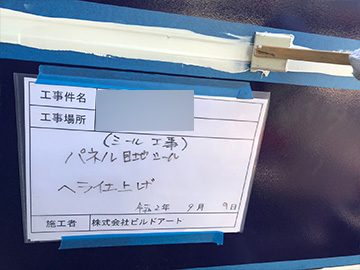 工事件名
工事場所
(シール工事)
パネル目地シール
ヘラ仕上げ
令和2年 9月 9日
施工者 株式会社ビルドアート